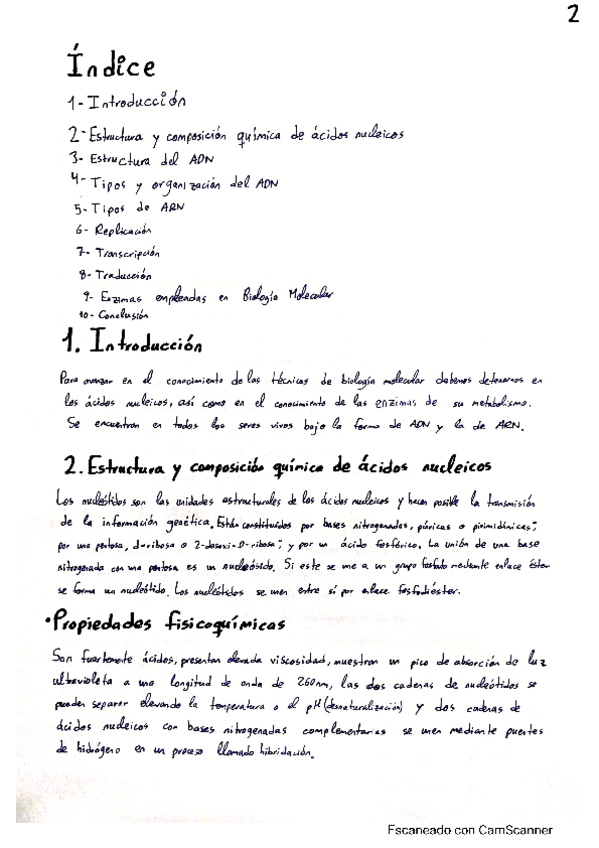 2
Índice
1- Introducción
2- Estructura y composición química de ácidos nucleicos
3- Estructura del ADN
4- Tipos y organización del ADN
5- Tipos de ARN
6- Replicación
7- Transcripción
8- Traducción
9- Enzimas empleadas en Biología Molecular
10- Conclusión
1. Introducción
Para avanzar en el conocimiento de las técnicas de biología molecular debemos detenernos en
los ácidos nucleicos, así como en el conocimiento de las enzimas de su metabolismo.
Se encuentran en todos los seres vivos bajo la forma de ADN y la de ARN.
2. Estructura y composición química de ácidos nucleicos
Los nucleótidos son las unidades estructurales de los ácidos nucleicos y hacen posible la transmisión
de la información genética. Están constituidos por bases nitrogenadas, púricas o pirimidínicas;
por una pentosa, d-ribosa o 2-desoxi-D-ribosa; y por un ácido fosfórico. La unión de una base
nitrogenada con una pentosa es un nucleósido. Si este se une a un grupo fosfato mediante enlace éster
se forma un nucleótido. Los nucleótidos se unen entre sí por enlace fosfodiéster.
• Propiedades fisicoquímicas
Son fuertemente ácidos, presentan elevada viscosidad, muestran un pico de absorción de luz
ultravioleta a una longitud de onda de 260nm, las dos cadenas de nucleótidos se
pueden separar elevando la temperatura o el pH (desnaturalización) y dos cadenas de
ácidos nucleicos con bases nitrogenadas complementarias se unen mediante puentes
de hidrógeno en un proceso llamado hibridación.
Escaneado con CamScanner